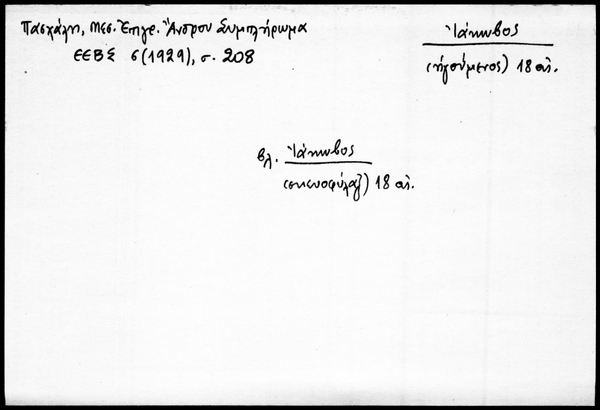 Πασχάλη, Μεσ. Ἐπιγρ. Ἄνδρου Συμπλήρωμα
ΕΕΒΣ 6(1929), σ. 208
Ἰάκωβος
(ἡγούμενος) 18 αἰ.
βλ. Ἰάκωβος
(σκευοφύλαξ) 18 αἰ.